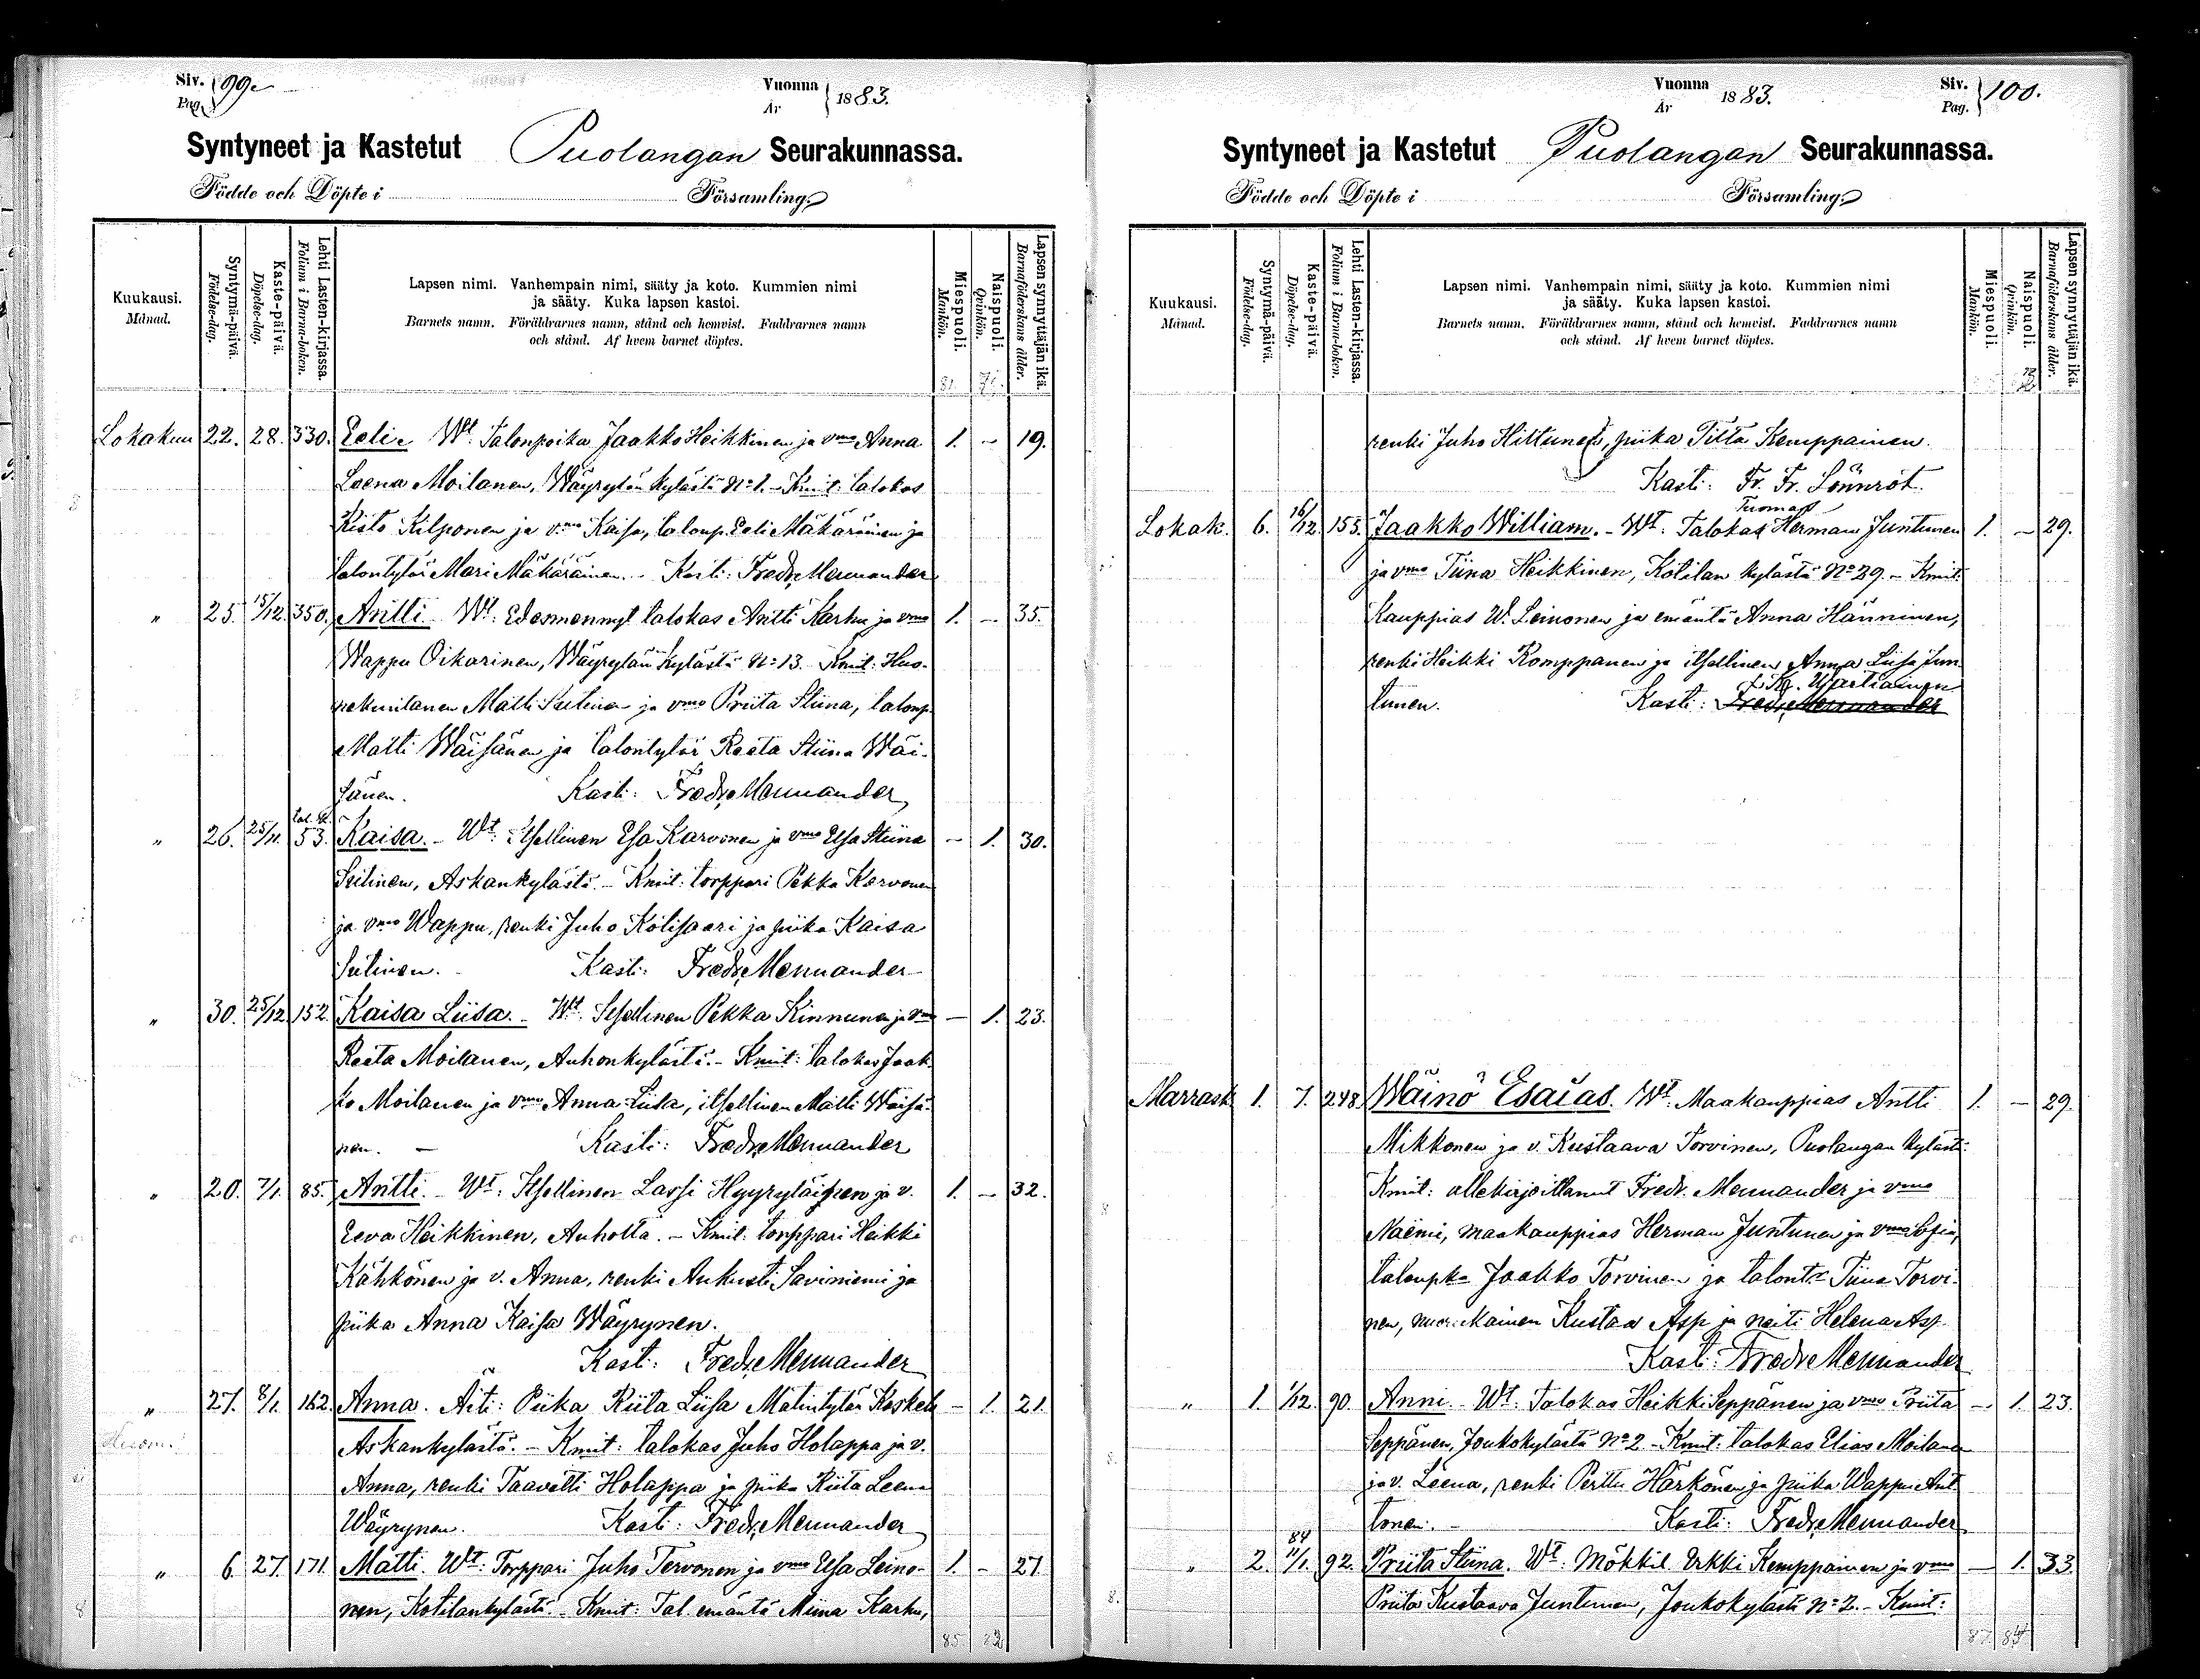 Siv. 99.
Pag.
Vuonna 1883.
År
Syntyneet ja Kastetut Puolangan Seurakunnassa.
Födde och Döpte i Församling.
Kuukausi.
Månad.
Syntymä-päivä.
Födelse-dag.
Kaste-päivä.
Döpelse-dag.
Lehti Lasten-kirjassa.
Folium i Barna-boken.
Lapsen nimi. Vanhempain nimi, sääty ja koto. Kummien nimi
ja sääty. Kuka lapsen kastoi.
Barnets namn. Föräldrarnes namn, stånd och hemvist. Faddrarnes namn
och stånd. Af hvem barnet döptes.
Miespuoli.
Mankön.
Naispuoli.
Qvinkön.
Lapsen synnyttäjän ikä.
Barnaföderskans ålder.
81.
Lokakuu 22. 28. 330. Eeli. Wt. Talonpoika Jaakko Heikkinen ja vmo Anna 1. - 19.
Leena Moilanen, Wäyrylän kylästä No 1. - Kmit: talokas
Risto Kilponen ja vmo Kaisa, talonp. Eeli Mäkäräinen ja
talontytär Mari Mäkäräinen. - Kasti: Fredr. Mennander
" 25. 15/12. 350. Antti. Wt: Edesmennyt talokas Antti Karhu ja vmo 1. - 35.
Wappu Oikarinen, Wäyrylän kylästä No 13. Kmit: Huo-
nekuntanen Matti Seitinen ja vmo Priita Stiina, talonp.
Matti Wäisänen ja talontytär Reeta Stiina Wäi-
sänen. Kasti: Fredr. Mennander
" 26. 25/11. 53. Kaisa. - Wt: Itsellinen Esa Karvonen ja vmo Elsa Stiina - 1. 30.
Seitinen, Askankylästä. - Kmit: torppari Pekka Karvonen
ja vmo Wappu, renki Juho Kotisaari ja piika Kaisa
Seitinen. Kasti: Fredr. Mennander
" 30. 25/12. 152. Kaisa Liisa. - Wt. Itsellinen Pekka Kinnunen ja vmo - 1. 23.
Reeta Moilanen, Auhonkylästä. - Kmit: talokas Jaak-
ko Moilanen ja vmo Anna Liisa, itsellinen Matti Wäisä-
nen. - Kasti: Fredr. Mennander
" 20. 7/1. 85. Antti. - Wt: Itsellinen Lassi Hyyryläinen ja v. 1. - 32.
Eeva Heikkinen, Auholta. - Kmit: torppari Heikki
Kähkönen ja v. Anna, renki Aukusti Saviniemi ja
piika Anna Kaisa Wäyrynen.
Kasti: Fredr. Mennander
" 27. 8/1. 162. Anna. Äiti: Piika Riita Liisa Matintytär Keskelä - 1. 21.
Askankylästä. - Kmit: talokas Juho Holappa ja v.
Anna, renki Taavetti Holappa ja piika Riita Leena
Wäyrynen. Kasti: Fredr. Mennander
" 6. 27. 171. Matti. Wt: Torppari Juho Tervonen ja vmo Elsa Leino- 1. - 27.
nen, Kotilankylästä. - Kmit: Tal. emäntä Miina Karhu,
85. 82
Vuonna 1883.
År
Siv. 100.
Pag.
Syntyneet ja Kastetut Puolangan Seurakunnassa.
Födde och Döpte i Församling.
Kuukausi.
Månad.
Syntymä-päivä.
Födelse-dag.
Kaste-päivä.
Döpelse-dag.
Lehti Lasten-kirjassa.
Folium i Barna-boken.
Lapsen nimi. Vanhempain nimi, sääty ja koto. Kummien nimi
ja sääty. Kuka lapsen kastoi.
Barnets namn. Föräldrarnes namn, stånd och hemvist. Faddrarnes namn
och stånd. Af hvem barnet döptes.
Miespuoli.
Mankön.
Naispuoli.
Qvinkön.
Lapsen synnyttäjän ikä.
Barnaföderskans ålder.
renki Juho Hiltunen, piika Titta Kemppainen.
Kasti: Fr. Fr. Lönnrot.
Tuomas
Lokak. 6. 16/12. 155. Jaakko William. - Wt: Talokas Herman Juntunen 1. - 29.
ja vmo Tiina Heikkinen, Kotilan kylästä No 29. - Kmit:
Kauppias W. Leinonen ja emäntä Anna Hänninen,
renki Heikki Romppanen ja itsellinen Anna Liisa Jun-
Wartiainen
tunen. Kasti: Fredr. Mennander
Marrask. 1. 7. 248. Wäinö Esaias. Wt. Maakauppias Antti 1. - 29.
Mikkonen ja v. Kustaava Torvinen, Puolangan kylästä.
Kmit: allekirjoittanut Fredr. Mennander ja vmo
Naëmi, maakauppias Herman Juntunen ja vmo Sofia,
talonpka Jaakko Torvinen ja talontr Tiina Torvi-
nen, nuorikainen Kustaa Asp ja neiti Helena Asp.
Kasti: Fredr. Mennander
" 1. 1/12. 90. Anni. - Wt: Talokas Heikki Seppänen ja vmo Priita - 1. 23.
Seppänen, Joukokylästä No 2. - Kmit: talokas Elias Moilanen
ja v. Leena, renki Perttu Härkönen ja piika Wappu Ant-
tonen. - Kasti: Fredr. Mennander
84
" 2. 11/1. 92. Priita Stiina. Wt: Mökkil. Erkki Kemppainen ja vmo - 1. 33.
Priita Kustaava Juntunen, Joukokylästä No 2. - Kmit:
87. 84